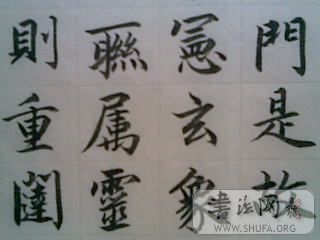 門是故
憲玄象
聯属靈
則重闥
書法网
WWW.SHUFA.ORG